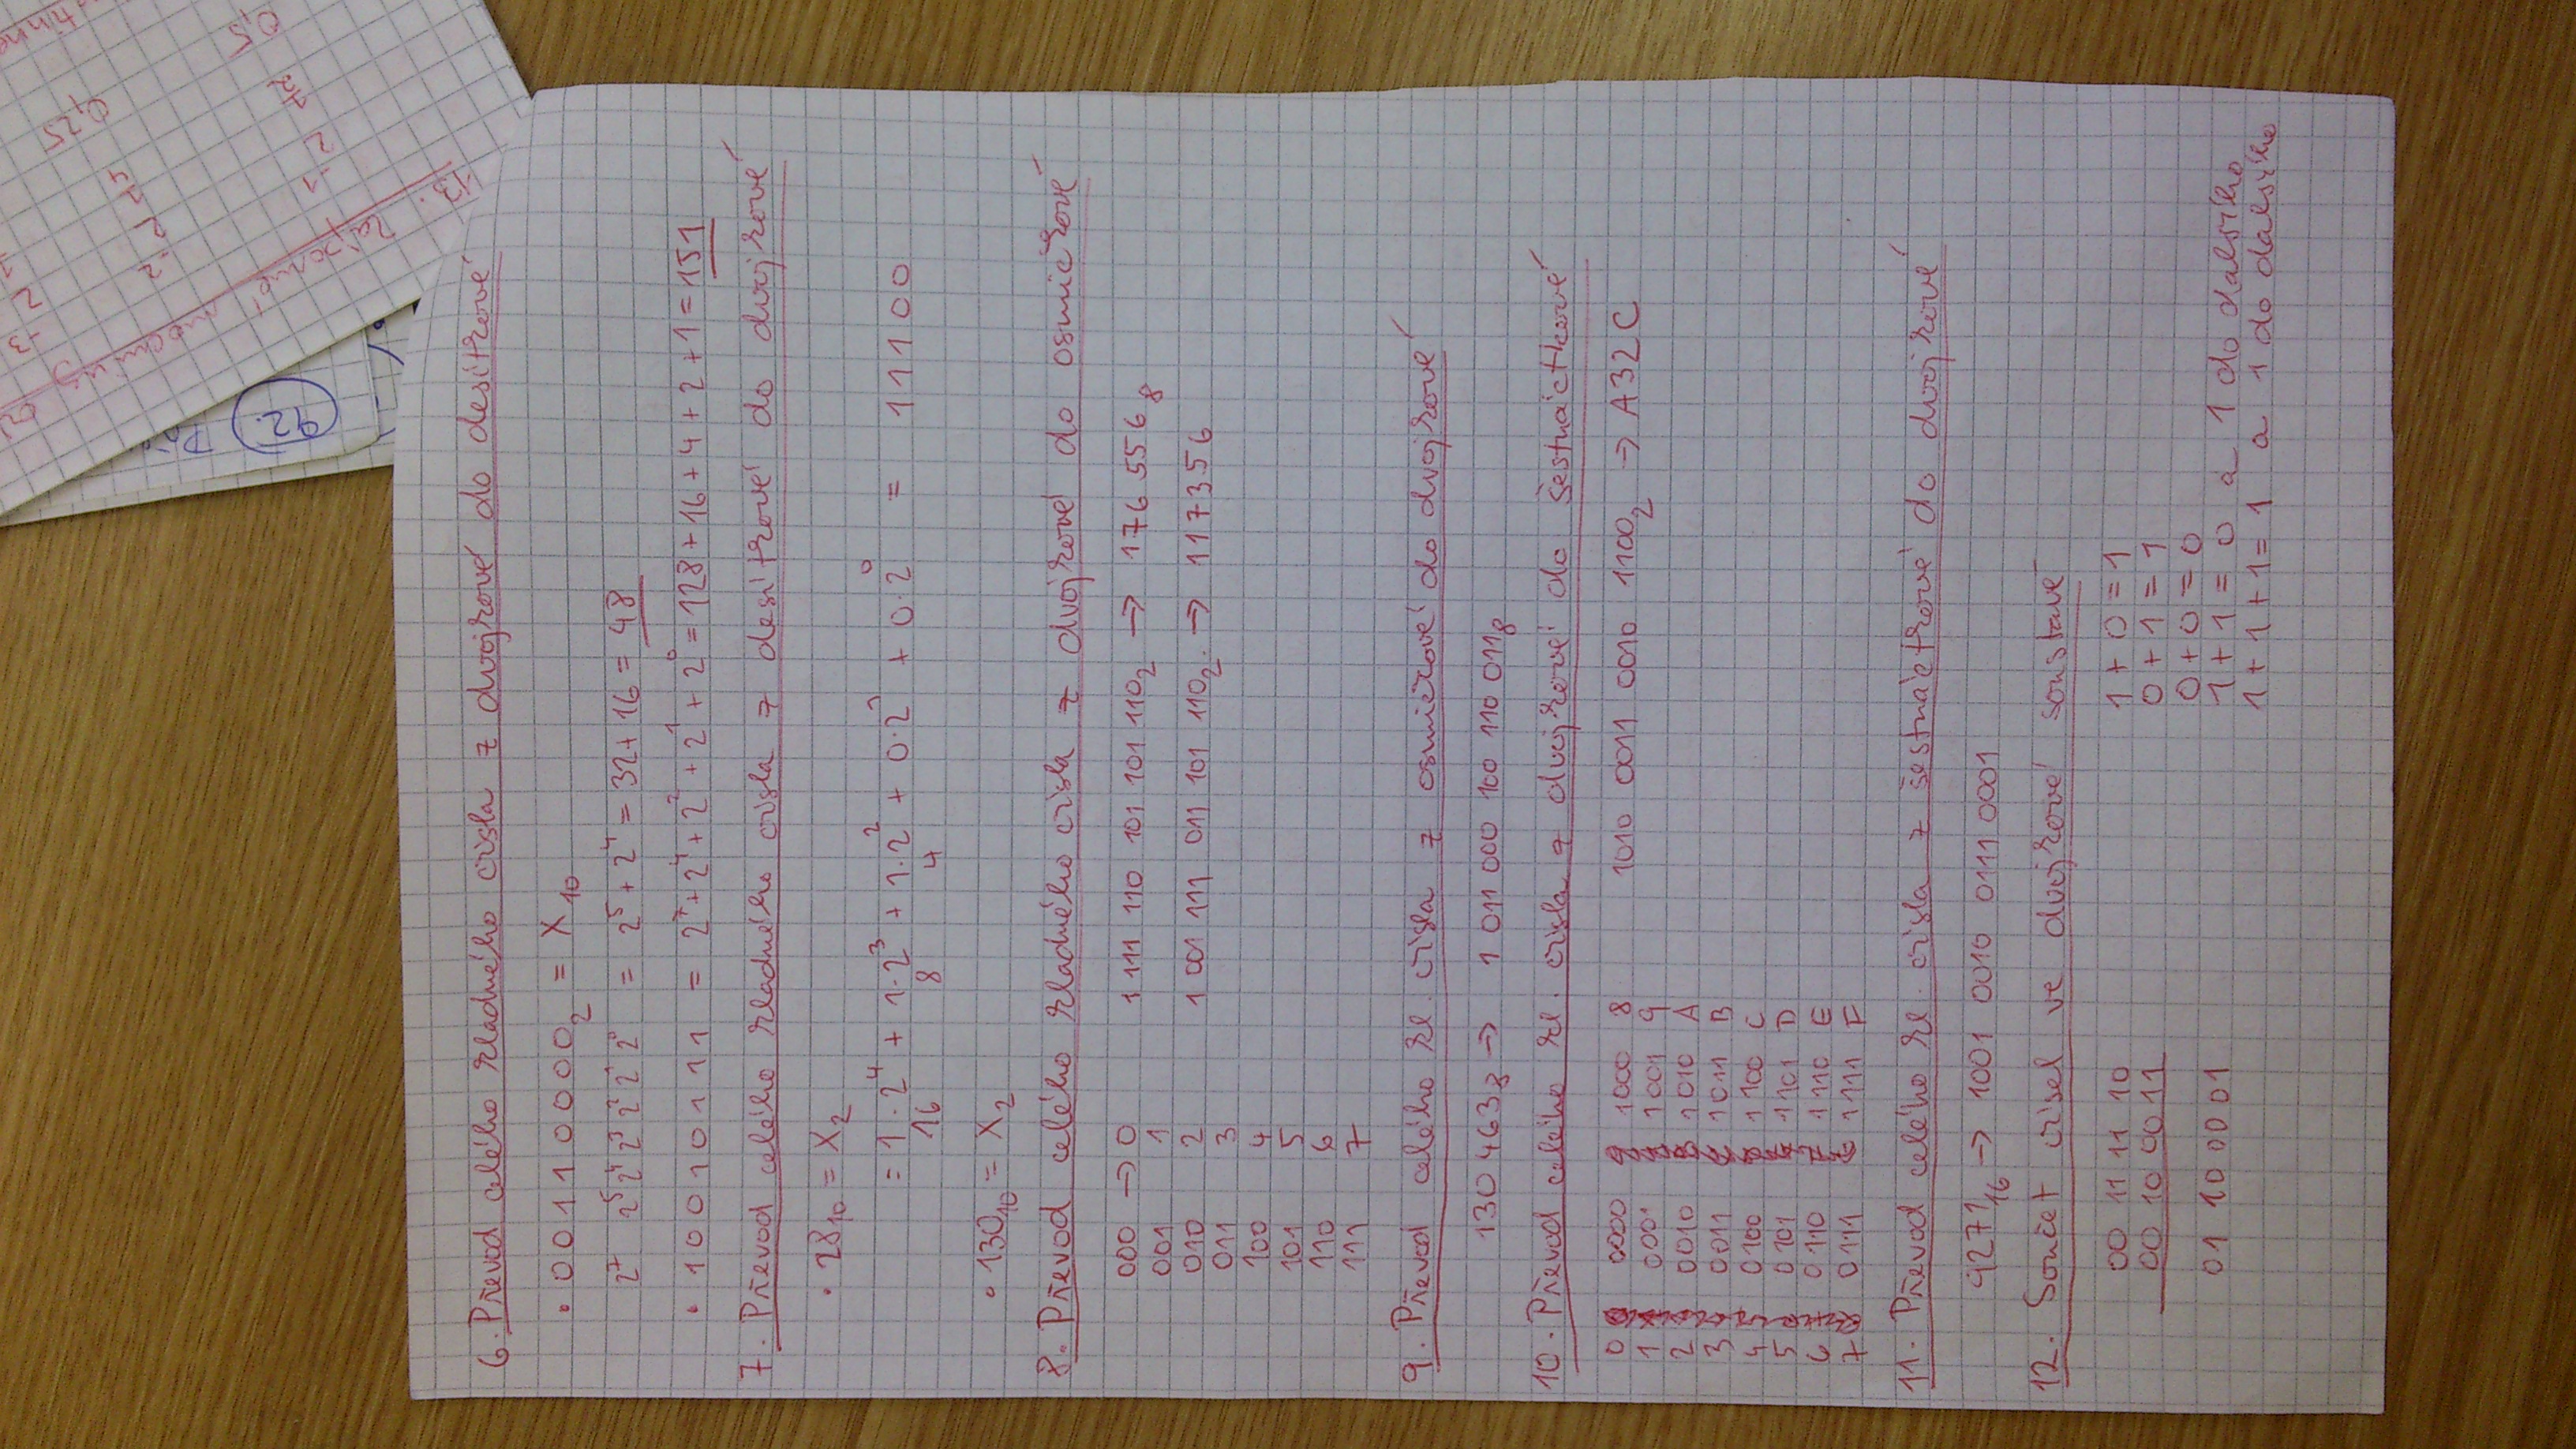 6. Převod celého kladného čísla z dvojkové do desítkové
• 00110000₂ = X₁₀
2⁷ 2⁵ 2⁴ 2³ 2² 2¹ 2⁰ = 2⁵ + 2⁴ = 32 + 16 = 48
• 10010111 = 2⁷ + 2⁴ + 2² + 2¹ + 2⁰ = 128 + 16 + 4 + 2 + 1 = 151
7. Převod celého kladného čísla z desítkové do dvojkové
• 28₁₀ = X₂
= 1 · 2⁴ + 1 · 2³ + 1 · 2² + 0 · 2¹ + 0 · 2⁰ = 11100
16 8 4
• 130₁₀ = X₂
8. Převod celého kladného čísla z dvojkové do osmičkové
000 → 0 1 111 110 101 101 110₂ → 176 556₈
001 1
010 2 1 001 111 011 101 110₂ → 117356
011 3
100 4
101 5
110 6
111 7
9. Převod celého kl. čísla z osmičkové do dvojkové
130 463₈ → 1 011 000 100 110 011₈
10. Převod celého kl. čísla z dvojkové do šestnáctkové
0 0000 1000 8 1010 0011 0010 1100₂ → A32C
1 0001 1001 9
2 0010 1010 A
3 0011 1011 B
4 0100 1100 C
5 0101 1101 D
6 0110 1110 E
7 0111 1111 F
11. Převod celého kl. čísla z šestnáctkové do dvojkové
9271₁₆ → 1001 0010 0111 0001
12. Součet čísel ve dvojkové soustavě
00 11 11 10 1 + 0 = 1
00 10 00 11 0 + 1 = 1
0 + 0 = 0
01 10 00 01 1 + 1 = 0 a 1 do dalsího
1 + 1 + 1 = 1 a 1 do dalsího
13.
2⁻¹ 0,5
2⁻² 0,25
92.